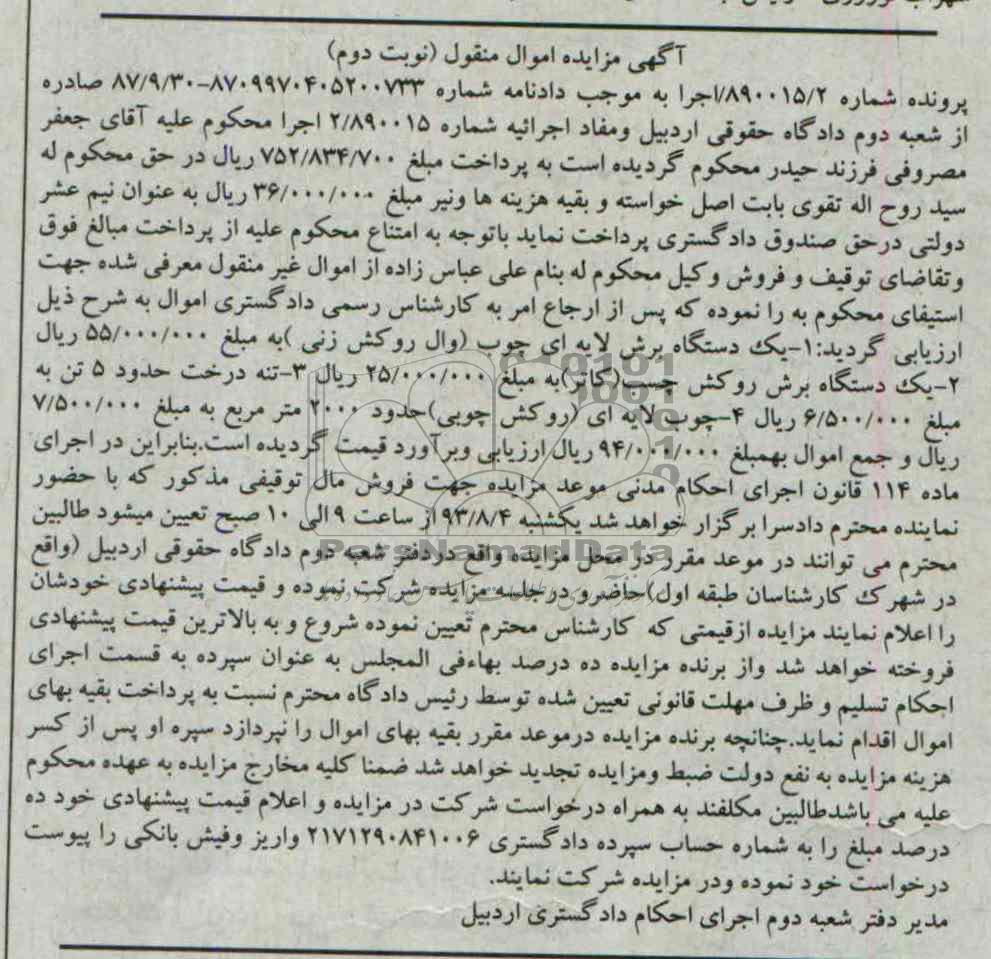 آگهی مزایده اموال منقول (نوبت دوم)
پرونده شماره ۸۹۰۰۱۵/۲/اجرا به موجب دادنامه شماره ۸۷۰۹۹۷۰۴۰۵۲۰۰۷۳۳-۸۷/۹/۳۰ صادره
از شعبه دوم دادگاه حقوقی اردبیل ومفاد اجرائیه شماره ۲/۸۹۰۰۱۵ اجرا محکوم علیه آقای جعفر
مصروفی فرزند حیدر محکوم گردیده است به پرداخت مبلغ ۷۵۲/۸۳۴/۷۰۰ ریال در حق محکوم له
سید روح اله تقوی بابت اصل خواسته و بقیه هزینه ها ونیر مبلغ ۳۶/۰۰۰/۰۰۰ ریال به عنوان نیم عشر
دولتی درحق صندوق دادگستری پرداخت نماید باتوجه به امتناع محکوم علیه از پرداخت مبالغ فوق
وتقاضای توقیف و فروش وکیل محکوم له بنام علی عباس زاده از اموال غیر منقول معرفی شده جهت
استیفای محکوم به را نموده که پس از ارجاع امر به کارشناس رسمی دادگستری اموال به شرح ذیل
ارزیابی گردید:۱-یک دستگاه برش لایه ای چوب (وال روکش زنی )به مبلغ ۵۵/۰۰۰/۰۰۰ ریال
۲-یک دستگاه برش روکش چسب(کاتر)به مبلغ ۲۵/۰۰۰/۰۰۰ ریال ۳-تنه درخت حدود ۵ تن به
مبلغ ۶/۵۰۰/۰۰۰ ریال ۴-چوب لایه ای (روکش چوبی)حدود ۲۰۰۰ متر مربع به مبلغ ۷/۵۰۰/۰۰۰
ریال و جمع اموال بهمبلغ ۹۴/۰۰۰/۰۰۰ ریال ارزیابی وبرآورد قیمت گردیده است.بنابراین در اجرای
ماده ۱۱۴ قانون اجرای احکام مدنی موعد مزایده جهت فروش مال توقیفی مذکور که با حضور
نماینده محترم دادسرا برگزار خواهد شد یکشنبه ۹۳/۸/۴ از ساعت ۹ الی ۱۰ صبح تعیین میشود طالبین
محترم می توانند در موعد مقرر در محل مزایده واقع دردفتر شعبه دوم دادگاه حقوقی اردبیل (واقع
در شهرک کارشناسان طبقه اول)حاضرو درجلسه مزایده شرکت نموده و قیمت پیشنهادی خودشان
را اعلام نمایند مزایده ازقیمتی که کارشناس محترم تعیین نموده شروع و به بالاترین قیمت پیشنهادی
فروخته خواهد شد واز برنده مزایده ده درصد بهاءفی المجلس به عنوان سپرده به قسمت اجرای
احکام تسلیم و ظرف مهلت قانونی تعیین شده توسط رئیس دادگاه محترم نسبت به پرداخت بقیه بهای
اموال اقدام نماید.چنانچه برنده مزایده درموعد مقرر بقیه بهای اموال را نپردازد سپره او پس از کسر
هزینه مزایده به نفع دولت ضبط ومزایده تجدید خواهد شد ضمنا کلیه مخارج مزایده به عهده محکوم
علیه می باشدطالبین مکلفند به همراه درخواست شرکت در مزایده و اعلام قیمت پیشنهادی خود ده
درصد مبلغ را به شماره حساب سپرده دادگستری ۲۱۷۱۲۹۰۸۴۱۰۰۶ واریز وفیش بانکی را پیوست
درخواست خود نموده ودر مزایده شرکت نمایند.
مدیر دفتر شعبه دوم اجرای احکام دادگستری اردبیل
ParsNamadData